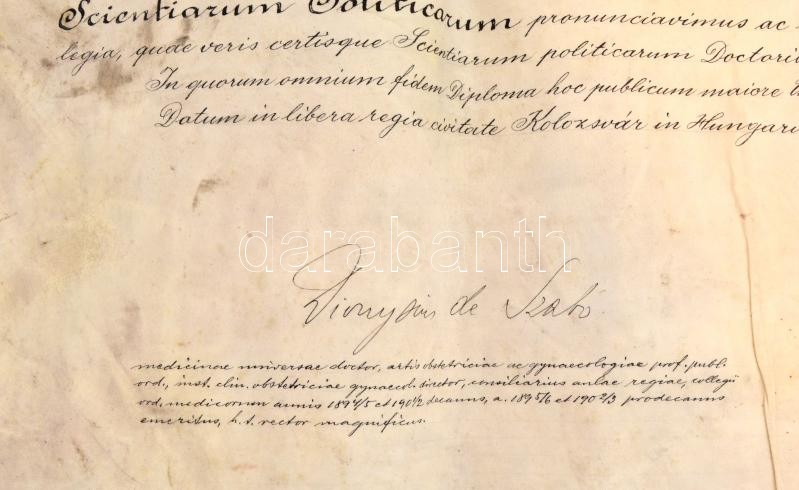 Scientiarum Politicarum pronunciavimus ac
legia, quae veris certisque Scientiarum politicarum Doctori
In quorum omnium fidem Diploma hoc publicum maiore
Datum in libera regia civitate Kolozsvár in Hungari
darabanth
Dionysius de Szabó
medicinae universae doctor, artis obstetriciae ac gynaecologiae prof. publ.
ord., inst. clin. obstetriciae gynaecol. director, consiliarius aulae regiae, collegii
ord. medicorum annis 1894/5 et 1901/2 decanus, a. 1895/6 et 1902/3 prodecanus
emeritus, h. t. rector magnificus.